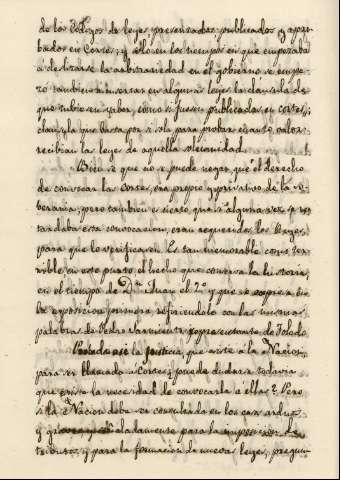 de los Codigos de leyes presentados, publicados y apro-
bados en Cortes; y solo en los tiempos en que empezaba
a deslizarse la arbitrariedad en el gobierno se empe-
zó tambien a insertar en algunas leyes la clausula de
que valiesen como si fuesen publicadas en cortes;
clausula que basta por sí sola para probar cuanto valor
recibian las leyes de aquella solemnidad.
Bien se que no se puede negar, que el derecho
de convocar las Cortes, era propio y privativo de la so-
berania; pero tambien es cierto, que si alguna vez se re-
tardaba esta convocacion, eran requeridos los Reyes,
para que lo verificasen. Es tan memorable como ter-
rible en este punto el hecho que conserva la historia,
en el tiempo de Dn Juan el 2º y que
exposicion primera refiriendolo con las mismas
palabras de Pedro Sarmiento, representante de Toledo.
Probada así la justicia, que asiste a la Nacion
para ser llamada a Cortes, ¿puede dudarse todavia
que exista la necesidad de convocarla a ellas? Pero
si la Nacion debe ser consultada en los casos arduos
y señaladamente para la
tributos, y para la formacion de nuevas leyes, pregun-